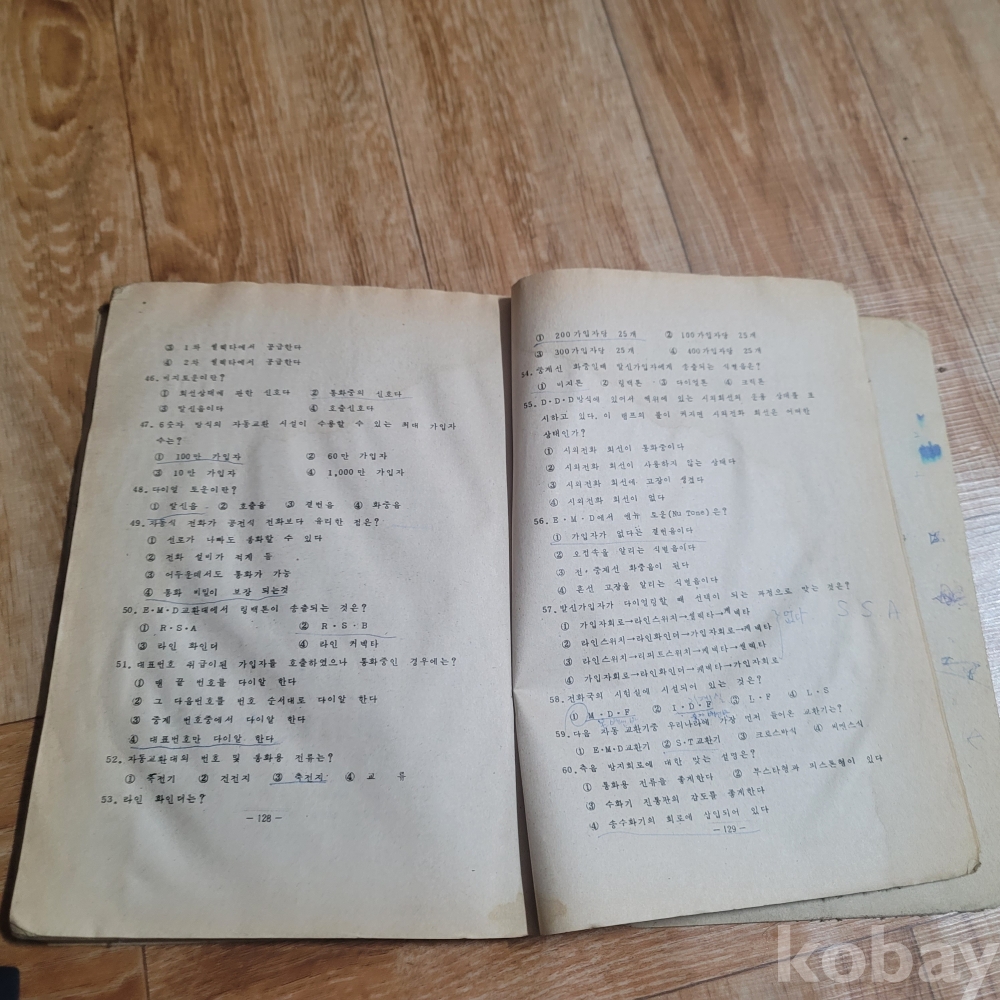 ③ 1차 셀렉타에서 공급한다
④ 2차 셀렉타에서 공급한다
46. 비지토운이란?
① 회선상태에 관한 신호다 ② 통화중의 신호다
③ 발신음이다 ④ 호출신호다
47. 6숫자 방식의 자동교환 시설이 수용할 수 있는 최대 가입자
수는?
① 100만 가입자 ② 60만 가입자
③ 10만 가입자 ④ 1,000만 가입자
48. 다이얼 토운이란?
① 발신음 ② 호출음 ③ 결번음 ④ 화중음
49. 자동식 전화가 공전식 전화보다 유리한 점은?
① 선로가 나빠도 통화할 수 있다
② 전화 설비가 적게 듬
③ 어두운데서도 통화가 가능
④ 통화 비밀이 보장 되는것
50. E·M·D교환대에서 링백톤이 송출되는 것은?
① R·S·A ② R·S·B
③ 라인 화인더 ④ 라인 커넥타
51. 대표번호 취급이된 가입자를 호출하였으나 통화중인 경우에는?
① 맨 끝 번호를 다이알 한다
② 그 다음번호를 번호 순서대로 다이알 한다
③ 중계 번호중에서 다이알 한다
④ 대표번호만 다이알 한다
52. 자동교환대의 번호 및 통화용 전류는?
① 발전기 ② 건전지 ③ 축전지 ④ 교 류
53. 라인 화인더는?
— 128 —
① 200가입자당 25개 ② 100가입자당 25개
③ 300가입자당 25개 ④ 400가입자당 25개
54. 중계선 화중일때 발신가입자에게 송출되는 식별음은?
① 비지톤 ② 링백톤 ③ 다이얼톤 ④ 크릭톤
55. D·D·D방식에 있어서 벽위에 있는 시외회선의 운용 상태를 표
시하고 있다. 이 램프의 불이 켜지면 시외전화 회선은 어떠한
상태인가?
① 시외전화 회선이 통화중이다
② 시외전화 회선이 사용하지 않는 상태다
③ 시외전화 회선에 고장이 생겼다
④ 시외전화 회선이 없다
56. E·M·D에서 엔유 토운(Nu Tone)은?
① 가입자가 없다는 결번음이다
② 오접속을 알리는 식별음이다
③ 전·중계선 화중음이 된다
④ 혼선 고장을 알리는 식별음이다
57. 발신가입자가 다이얼링할 때 선택이 되는 과정으로 맞는 것은?
① 가입자회로→라인스위치→셀렉타→커넥타
② 라인스위치→라인화인더→가입자회로→커넥타
③ 라인스위치→리피트스위치→커넥타→셀렉타
④ 가입자회로→라인화인더→커넥타→가입자회로
S S A
58. 전화국의 시험실에 시설되어 있는 것은?
① M·D·F ② I·D·F ③ L·F ④ L·S
59. 다음 자동 교환기중 우리나라에 가장 먼저 들어온 교환기는?
① E·M·D교환기 ② S·T교환기 ③ 크로스바식
60. 측음 방지회로에 대한 맞는 설명은?
① 통화용 전류를 좋게한다 ② 부스타형과 피스톤형이 있다
③ 수화기 진동판의 감도를 좋게한다
④ 송수화기의 회로에 삽입되어 있다
— 129 —
kobay